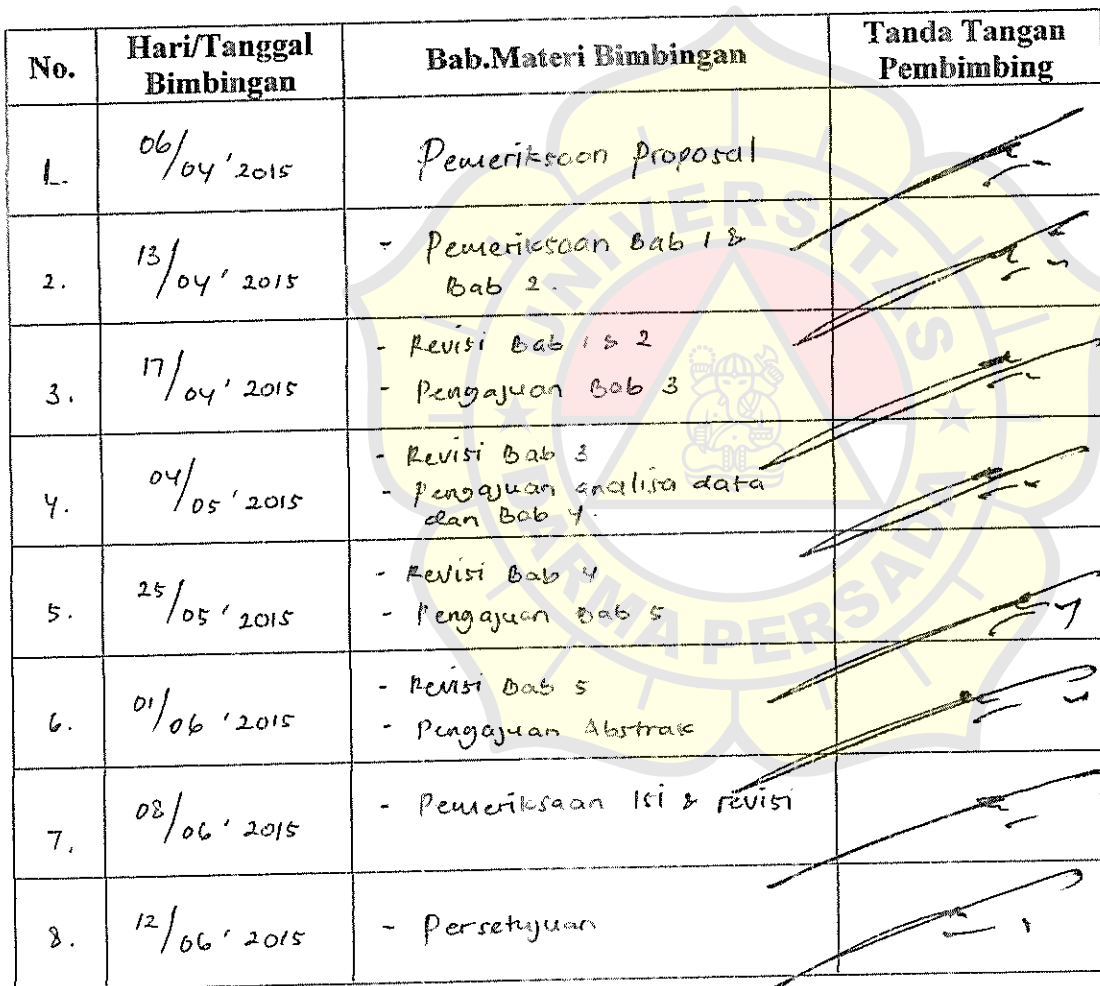 No.
Hari/Tanggal
Bimbingan
Bab.Materi Bimbingan
Tanda Tangan
Pembimbing
1.
06/04 ' 2015
Pemeriksaan Proposal
2.
13/04 ' 2015
- Pemeriksaan Bab 1 &
Bab 2.
3.
17/04 ' 2015
- Revisi Bab 1 & 2
- Pengajuan Bab 3
4.
04/05 ' 2015
- Revisi Bab 3
- Pengajuan analisa data
dan Bab 4.
5.
25/05 ' 2015
- Revisi Bab 4
- Pengajuan Bab 5
6.
01/06 ' 2015
- Revisi Bab 5
- Pengajuan Abstrak
7.
08/06 ' 2015
- Pemeriksaan Isi & revisi
8.
12/06 ' 2015
- Persetujuan
UNIVERSITAS
DARMA PERSADA